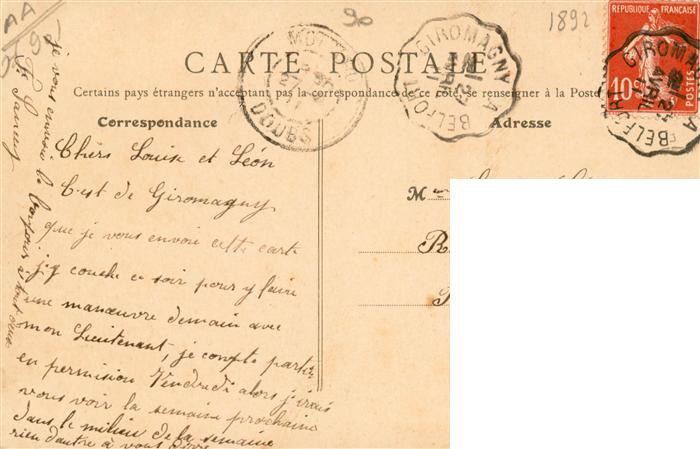 AA
90
1892
CARTE POSTALE
Certains pays étrangers n'acceptant pas la correspondance de ce côté, se renseigner à la Poste
Correspondance
Adresse
RÉPUBLIQUE FRANÇAISE
10
POSTES
GIROMAGNY A BELFORT
AVRIL
GIROMAGNY A BELFORT
AVRIL
DOUBS
Chers Louise et Léon
C'est de Giromagny
que je vous envoie cette carte
j'y couche ce soir pour y faire
une manœuvre demain avec
mon Lieutenant, je compte partir
en permission Vendredi alors j'irais
vous voir la semaine prochaine
dans le milieu de la semaine
rien d'autre à vous
je vous envoie le bonjour à tous deux
M
R